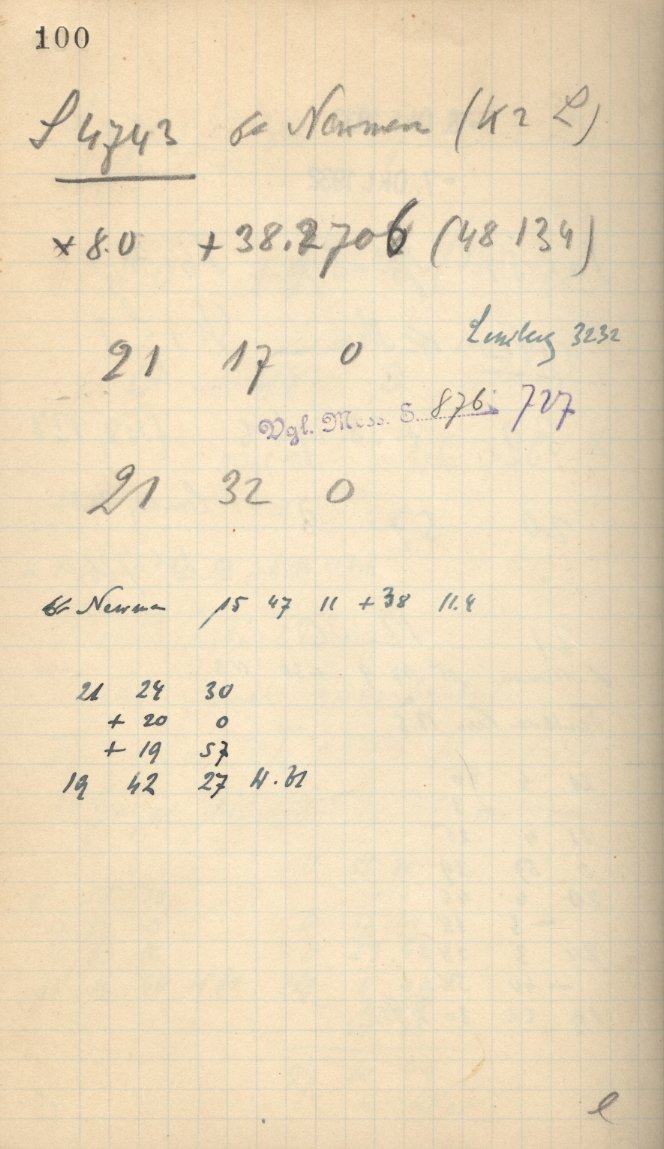 100
S 4743 Nowmen (Kz L)
* 8.0 +38.2706 (48 134)
21 17 0
3232
Vgl. Mess. S. 876 727
21 32 0
15 47 11 +38 11.4
21 24 30
+ 20 0
+ 19 57
19 42 27
e